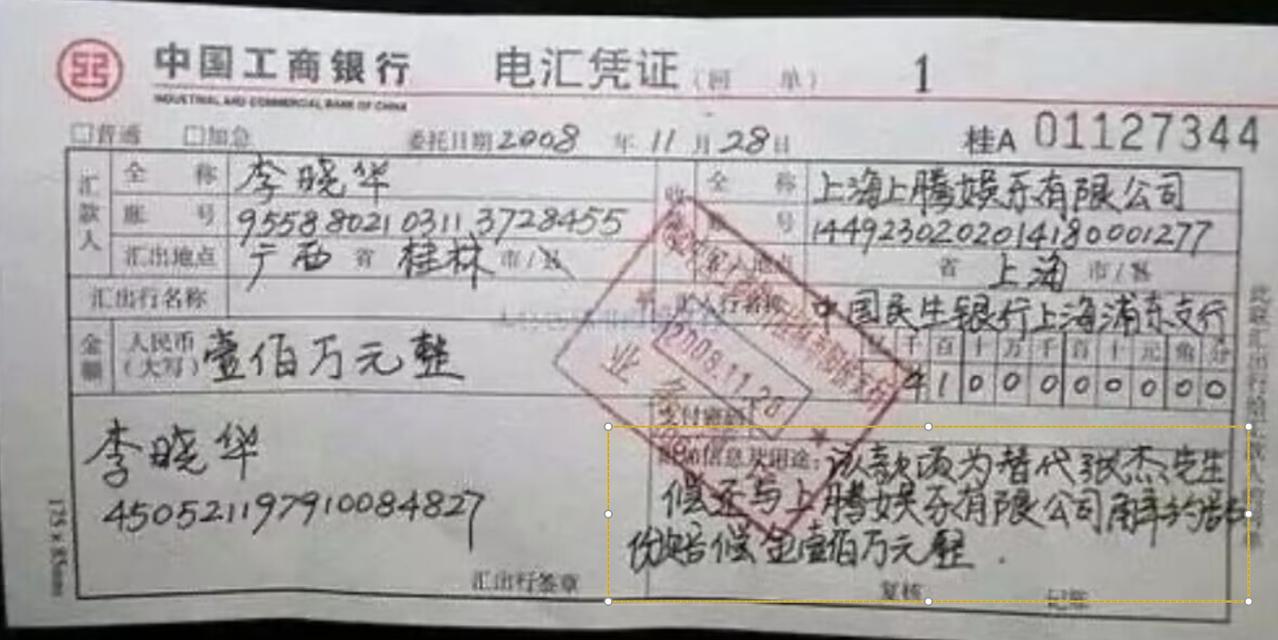 中国工商银行 电汇凭证 (回 单) 1
INDUSTRIAL AND COMMERCIAL BANK OF CHINA
□普通 □加急 委托日期2008 年 11 月 28 日 桂A 01127344
汇款人 全 称 李晓华 全 称 上海上腾娱乐有限公司
账 号 9558802103113728455 号 1449230202014180001277
汇出地点 广西 省 桂林 市/县 汇入地点 省 上海 市/县
汇出行名称 汇入行名称 中国民生银行上海浦东支行
金额 人民币(大写) 壹佰万元整 千 百 十 万 千 百 十 元 角 分
1 0 0 0 0 0 0 0 0
2008.11.28
业务
支付密码
李晓华 信息及用途:该款项为替代张杰先生
偿还与上腾娱乐有限公司解约部
450521197910084827
份赔偿金壹佰万元整.
汇出行签章 复核 记账
175×85mm